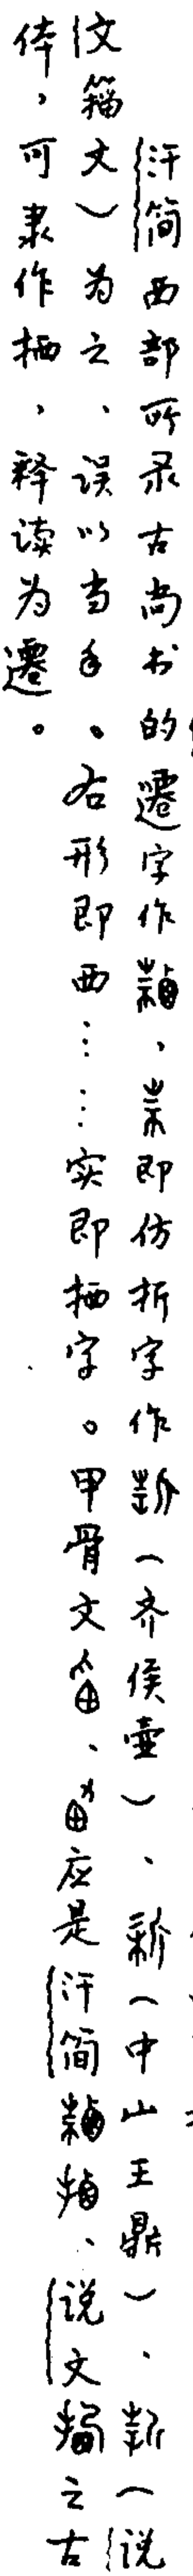 汗简西部所录古尚书的遷字作，即仿折字作（齐侯壶）、（中山王鼎）、（说
文籀文）为之、误以当手。右形即西……实即栖字。甲骨文、应是汗简、说文之古
体，可隶作栖，释读为遷。